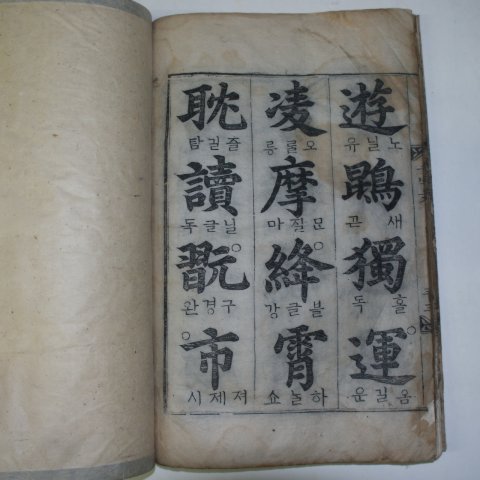 遊
노닐유
鵾
새곤
獨
홀독
運
옴길운
凌
오를릉
摩
문질마
絳
블글강
霄
하늘쇼
耽
즐길탐
讀
닐글독
翫
구경완
市
져제시